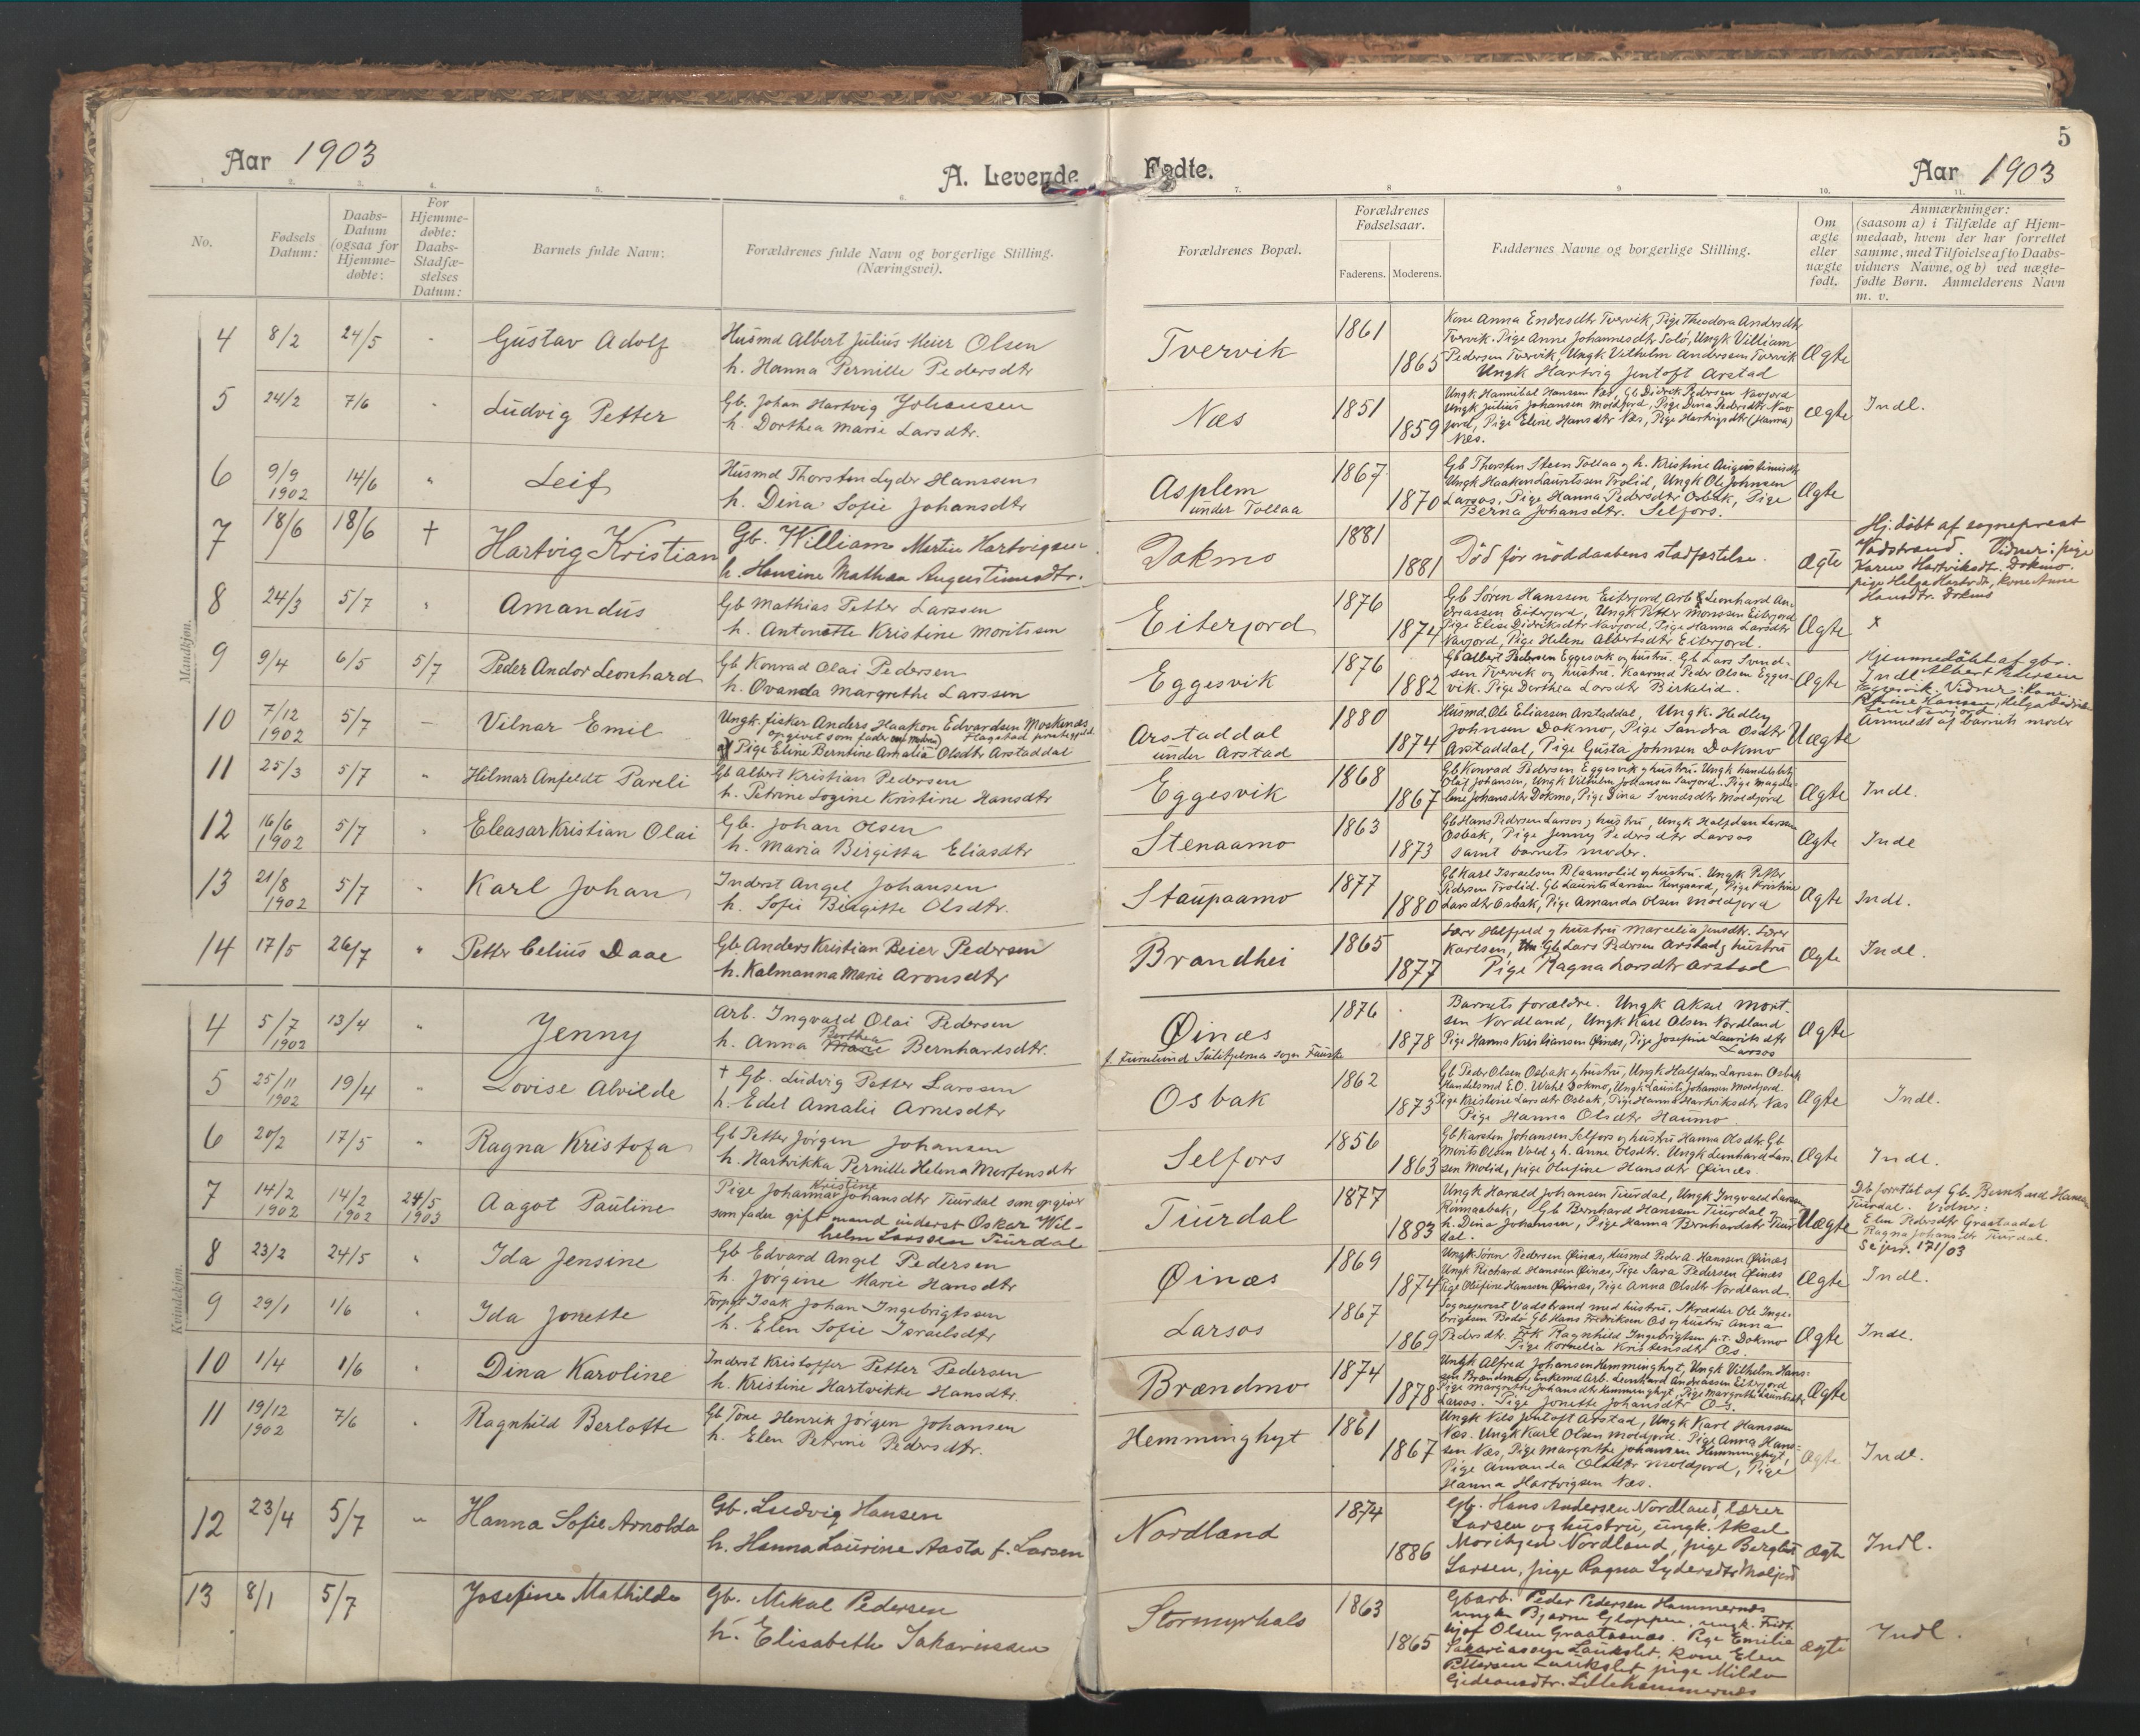 5
Aar 1903
A. Levende Fødte.
Aar 1903
1. 2. 3. 4. 5. 6. 7. 8. 9 10. 11.
No.
Fødsels Datum:
Daabs-
Datum
(ogsaa for
Hjemme-
døbte:
For
Hjemme-
døbte:
Daabs-
Stadfæ-
stelses
Datum:
Barnets fulde Navn:
Forældrenes fulde Navn og borgerlige Stilling.
(Næringsvei).
Forældrenes Bopæl.
Forældrenes
Fødselsaar.
Faderens. Moderens.
Faddernes Navne og borgerlige Stilling.
Om
ægte
eller
uægte
født.
Anmærkninger:
(saasom a) i Tilfælde af Hjem-
medaab, hvem der har forrettet
samme, med Tilføielse af to Daabs-
vidners Navne, og b) ved uægte-
fødte Børn. Anmelderens Navn
m. v.
Mandkjøn.
4 8/2 24/5 - Gustav Adolf
Husmd Albert Julius Meier Olsen
h. Hanna Pernille Pedersdtr
Tvervik 1861 1865
Kone Anna Endresdtr Tvervik, Pige Theodora Andersdtr
Tvervik. Pige Anne Johannesdtr Solö, Ungk Villiam
Pedersen Tvervik, Ungk Vilhelm Anderssen Tvervik
Ungk Hartvig Jentoft Arstad
Ægte
5 24/2 7/6 - Ludvig Petter
Gb. Johan Hartvig Johansen
h. Dorthea Marie Larsdtr.
Næs 1851 1859
Ungk Hannibal Hansen Næs, Gb Didrik Pedersen Navjord
Ungk Julius Johansen Moldjord, Pige Dina Pedersdtr Nav-
jord, Pige Eline Hansdtr Næs, Pige Hartvigsdtr (Hanna)
Næs.
Ægte Indl.
6 9/9 1902 14/6 " Leif
Husmd Thorsten Lyder Hanssen
h. Dina Sofie Johansdtr
Asplem
under Tollaa
1867 1870
Gb Thorsten Steen Tollaa og h. Kristine Augustinusdtr
Ungk Haaken Lauritssen Trolid, Ungk Ole Johnsen
Larsos, Pige Hanna Pedersdtr Osbak, Pige
Berna Johansdtr. Selfors.
Ægte
7 18/6 18/6 † Hartvig Kristian
Gb. William Martin Hartvigsen
h. Hansine Mathea Augustinusdtr.
Dokmo 1881 1881
Död för nöddaabens stadfæstelse.
Ægte
Hj. döbt af sogneprest
Vadstrand. Vidner: pige
Karen Hartviksdtr. Dokmo.
pige Helga Hartvdtr, kone Anne
Hansdtr. Dokmo
8 24/3 5/7 " Amandus
Gb Mathias Petter Larssen
h. Antonette Kristine Moritssen
Eiterjord 1876 1874
Gb Søren Hanssen Eiterjord, Arb Leonhard An-
dreassen Eiterjord, Ungk Petter Monssen Eiterjord
Pige Elise Didriksdtr Navjord, Pige Hanna Larsdtr
Navjord, Pige Helene Albertsdtr Eiterjord.
Ægte x
9 9/4 6/5 5/7 Peder Andor Leonhard
Gb Konrad Olai Pedersen
h. Ovanda Margrethe Larssen
Eggesvik 1876 1882
Gb Albert Pedersen Eggesvik og hustru. Gb Lars Svend-
sen Tvervik og hustru, Kaarmd Peder Olsen Egges-
vik. Pige Dorthea Larsdtr Birkelid.
Ægte
Hjemmedöbt af gbr.
Indl. Albert Pedersen
Eggesvik. Vidner: Kone
10 7/12 1902 5/7 - Vilnar Emil
Ungk. fisker Anders Haakon Edvardsen Moskenes,
opgivet som fader
Pige Eline Berntine Amalia Olsdtr Arstaddal
Arstaddal
under Arstad
1880 1874
Husmd. Ole Eliassen Arstaddal, Ungk. Hedley
Johnsen Dokmo, Pige Sandra Olsdtr
Arstaddal, Pige Gusta Johnsen Dokmo
Uægte
Anmeldt af barnets moder
11 25/3 5/7 " Hilmar Anfeldt Pareli
Gb Albert Kristian Pedersen
h. Petrine Logine Kristine Hansdtr
Eggesvik 1868 1867
Gb Konrad Pedersen Eggesvik og hustru. Ungk handelsbet.
Olaf Johansen, Ungk Vilhelm Johansen Navjord. Pige Magda-
lene Johansdtr Dokmo, Pige Dina Svendsdtr Moldjord
Ægte Indl.
12 16/6 1902 5/7 " Eleasar Kristian Olai
Gb. Johan Olsen
h. Maria Birgitta Eliasdtr
Stenaamo 1863 1873
Gb Hans Pedersen Larsos og hustru, Ungk Halfdan Larsen
Osbak, Pige Jenny Pedersdtr Larsos
samt barnets moder.
Ægte Indl
13 21/8 1902 5/7 " Karl Johan
Inderst Angel Johansen
h. Sofie Birgitte Olsdtr.
Staupaamo 1877 1880
Gb Karl Israelsen Blaamolid og hustru. Ungk Petter
Pedersen Trolid. Gb Laurits Larsen Rengaard, Pige Kristine
Larsdtr Osbak, Pige Amanda Olsen Moldjord
Ægte Indl.
14 17/5 26/7 " Petter Celius Daae
Gb Anders Kristian Beier Pedersen
h. Kalmanna Marie Aronsdtr
Brandhei 1865 1877
Lærer Helfjeld og hustru Marcelia Jensdtr. Lærer
Karlsen, Gb Lars Pedersen Arstad og hustru
Pige Ragna Larsdtr Arstad
Ægte Indl.
Kvindekjøn.
4 5/7 1902 13/4 " Jenny
Arb. Ingvald Olai Pedersen
h. Anna Berthea Marie Bernhardsdtr.
Øinæs
f. Furulund Sulitjelma sogn Fauske
1876 1878
Barnets forældre. Ungk Aksel Morit-
sen Nordland, Ungk Karl Olsen Nordland
Pige Hanna Kristiansen Øinæs, Pige Josefine Lauritsdtr
Larsos
Ægte
5 25/11 1902 19/4 " Lovise Alvilde
† Gb. Ludvig Petter Larssen
h. Edel Amalie Arnesdtr
Osbak 1862 1873
Gb Peder Olsen Osbak og hustru, Ungk Halfdan Larssen Osbak
Handelsmd E.O. Wahl Dokmo, Ungk Laurits Johansen Moldjord.
Pige Kristine Larsdtr Osbak, Pige Hanna Hartviksdtr Næs
Pige Hanna Olsdtr Haumo
Ægte Indl.
6 20/2 17/5 " Ragna Kristofa
Gb Petter Jörgen Johansen
h. Hartvikka Pernille Helena Mortensdtr
Selfors 1856 1863
Gb Karsten Johansen Selfors og hustru Hanna Olsdtr. Gb
Morits Olsen Vold og h. Anne Olsdtr. Ungk Leonhard Lars-
sen Molid, pige Olufine Hansdtr Øinæs.
Ægte Indl.
7 14/2 1902 14/2 1902 24/5 1903 Aagot Pauline
Pige Johanna Kristine Johansdtr Tiurdal som opgiver
som fader gift mand inderst Oskar Wil-
helm Larssen Tiurdal
Tiurdal 1877 1883
Ungk Harald Johansen Tiurdal, Ungk Ingvald Larsen
Ronnaabak, Gb Bernhard Hanssen Tiurdal og
h. Dina Johansen, Pige Hanna Bernhardsdtr Tiur-
dal.
Uægte
Db forrettet af Gb. Bernhard Hansen
Tiurdal. Vidner:
Elen Pedersdtr Graataadal
Ragna Johansdtr Tiurdal.
Se jur. 171/03
8 23/2 24/5 " Ida Jensine
Gb Edvard Angel Pedersen
h. Jörgine Marie Hansdtr
Øinæs 1869 1874
Ungk Sören Pedersen Øinæs, Husmd Peder A. Hanssen Øinæs
Ungk Richard Hanssen Øinæs, Pige Sara Pedersen Øinæs
Pige Olufine Hansen Øinæs, Pige Anna Olsdtr Nordland
Ægte Indl.
9 29/1 1/6 " Ida Jonette
Forpgt Isak Johan Ingebrigtssen
h. Elen Sofie Israelsdtr
Larsos 1867 1869
Sogneprest Vadstrand med hustru. Skrædder Ole Inge-
brigtsen Bodö Gb Hans Fredriksen Os og hustru Anna
Pedersdtr. Frk Ragnhild Ingebrigtsen p.t. Dokmo
Pige Kornelia Kristensdtr Os.
Ægte Indl.
10 1/4 1/6 " Dina Karoline
Inderst Kristoffer Petter Pedersen
h. Kristine Hartvikke Hansdtr.
Brændmo 1874 1878
Ungk Alfred Johansen Hemminghyt, Ungk Vilhelm Hans-
sen Brændmo, Enkemd Arb. Leonhard Andreassen Eiterjord
Pige Margrethe Johansdtr Hemminghyt, Pige Margrethe Lauritsdtr
Larsos. Pige Jonette Johansdtr Os.
Ægte
11 19/12 1902 7/6 " Ragnhild Berlotte
Gb Tone Henrik Jörgen Johansen
h. Elen Petrine Pedersdtr.
Hemminghyt 1861 1867
Ungk Nils Jentoft Arstad, Ungk Karl Hanssen
Næs. Ungk Karl Olsen Moldjord. Pige Anna Hans-
sen Næs, Pige Margrethe Johansen Hemminghyt,
Pige Amanda Olsdtr Moldjord, Pige
Hanna Hartvigsen Næs.
Ægte Indl.
12 23/4 5/7 " Hanna Sofie Arnolda
Gb. Ludvig Hansen
h. Hanna Laurine Aasta f. Larsen
Nordland 1874 1886
Gb. Hans Andersen Nordland, lærer
Larsen og hustru, ungk. Aksel
Moritzen Nordland, pige Bergliot
Larsen, pige Ragna Lydersdtr Moljord
Ægte Indl.
13 8/1 5/7 Josefine Mathilde
Gb. Mekal Pedersen
h. Elisabeth Sakariassen
Stormyrhals 1863 1865
Gbarb. Peder Pedersen Hammernes
ungk. Bjarne Gloppen, ungk. Fridt-
jof Olsen Graataanæs. Pige Emilie
Sakariassen Laukslet. Kone Elen
Pettersen Laukslet pige Milda
Gideonsdtr. Lillehammernes
ægte Indl.